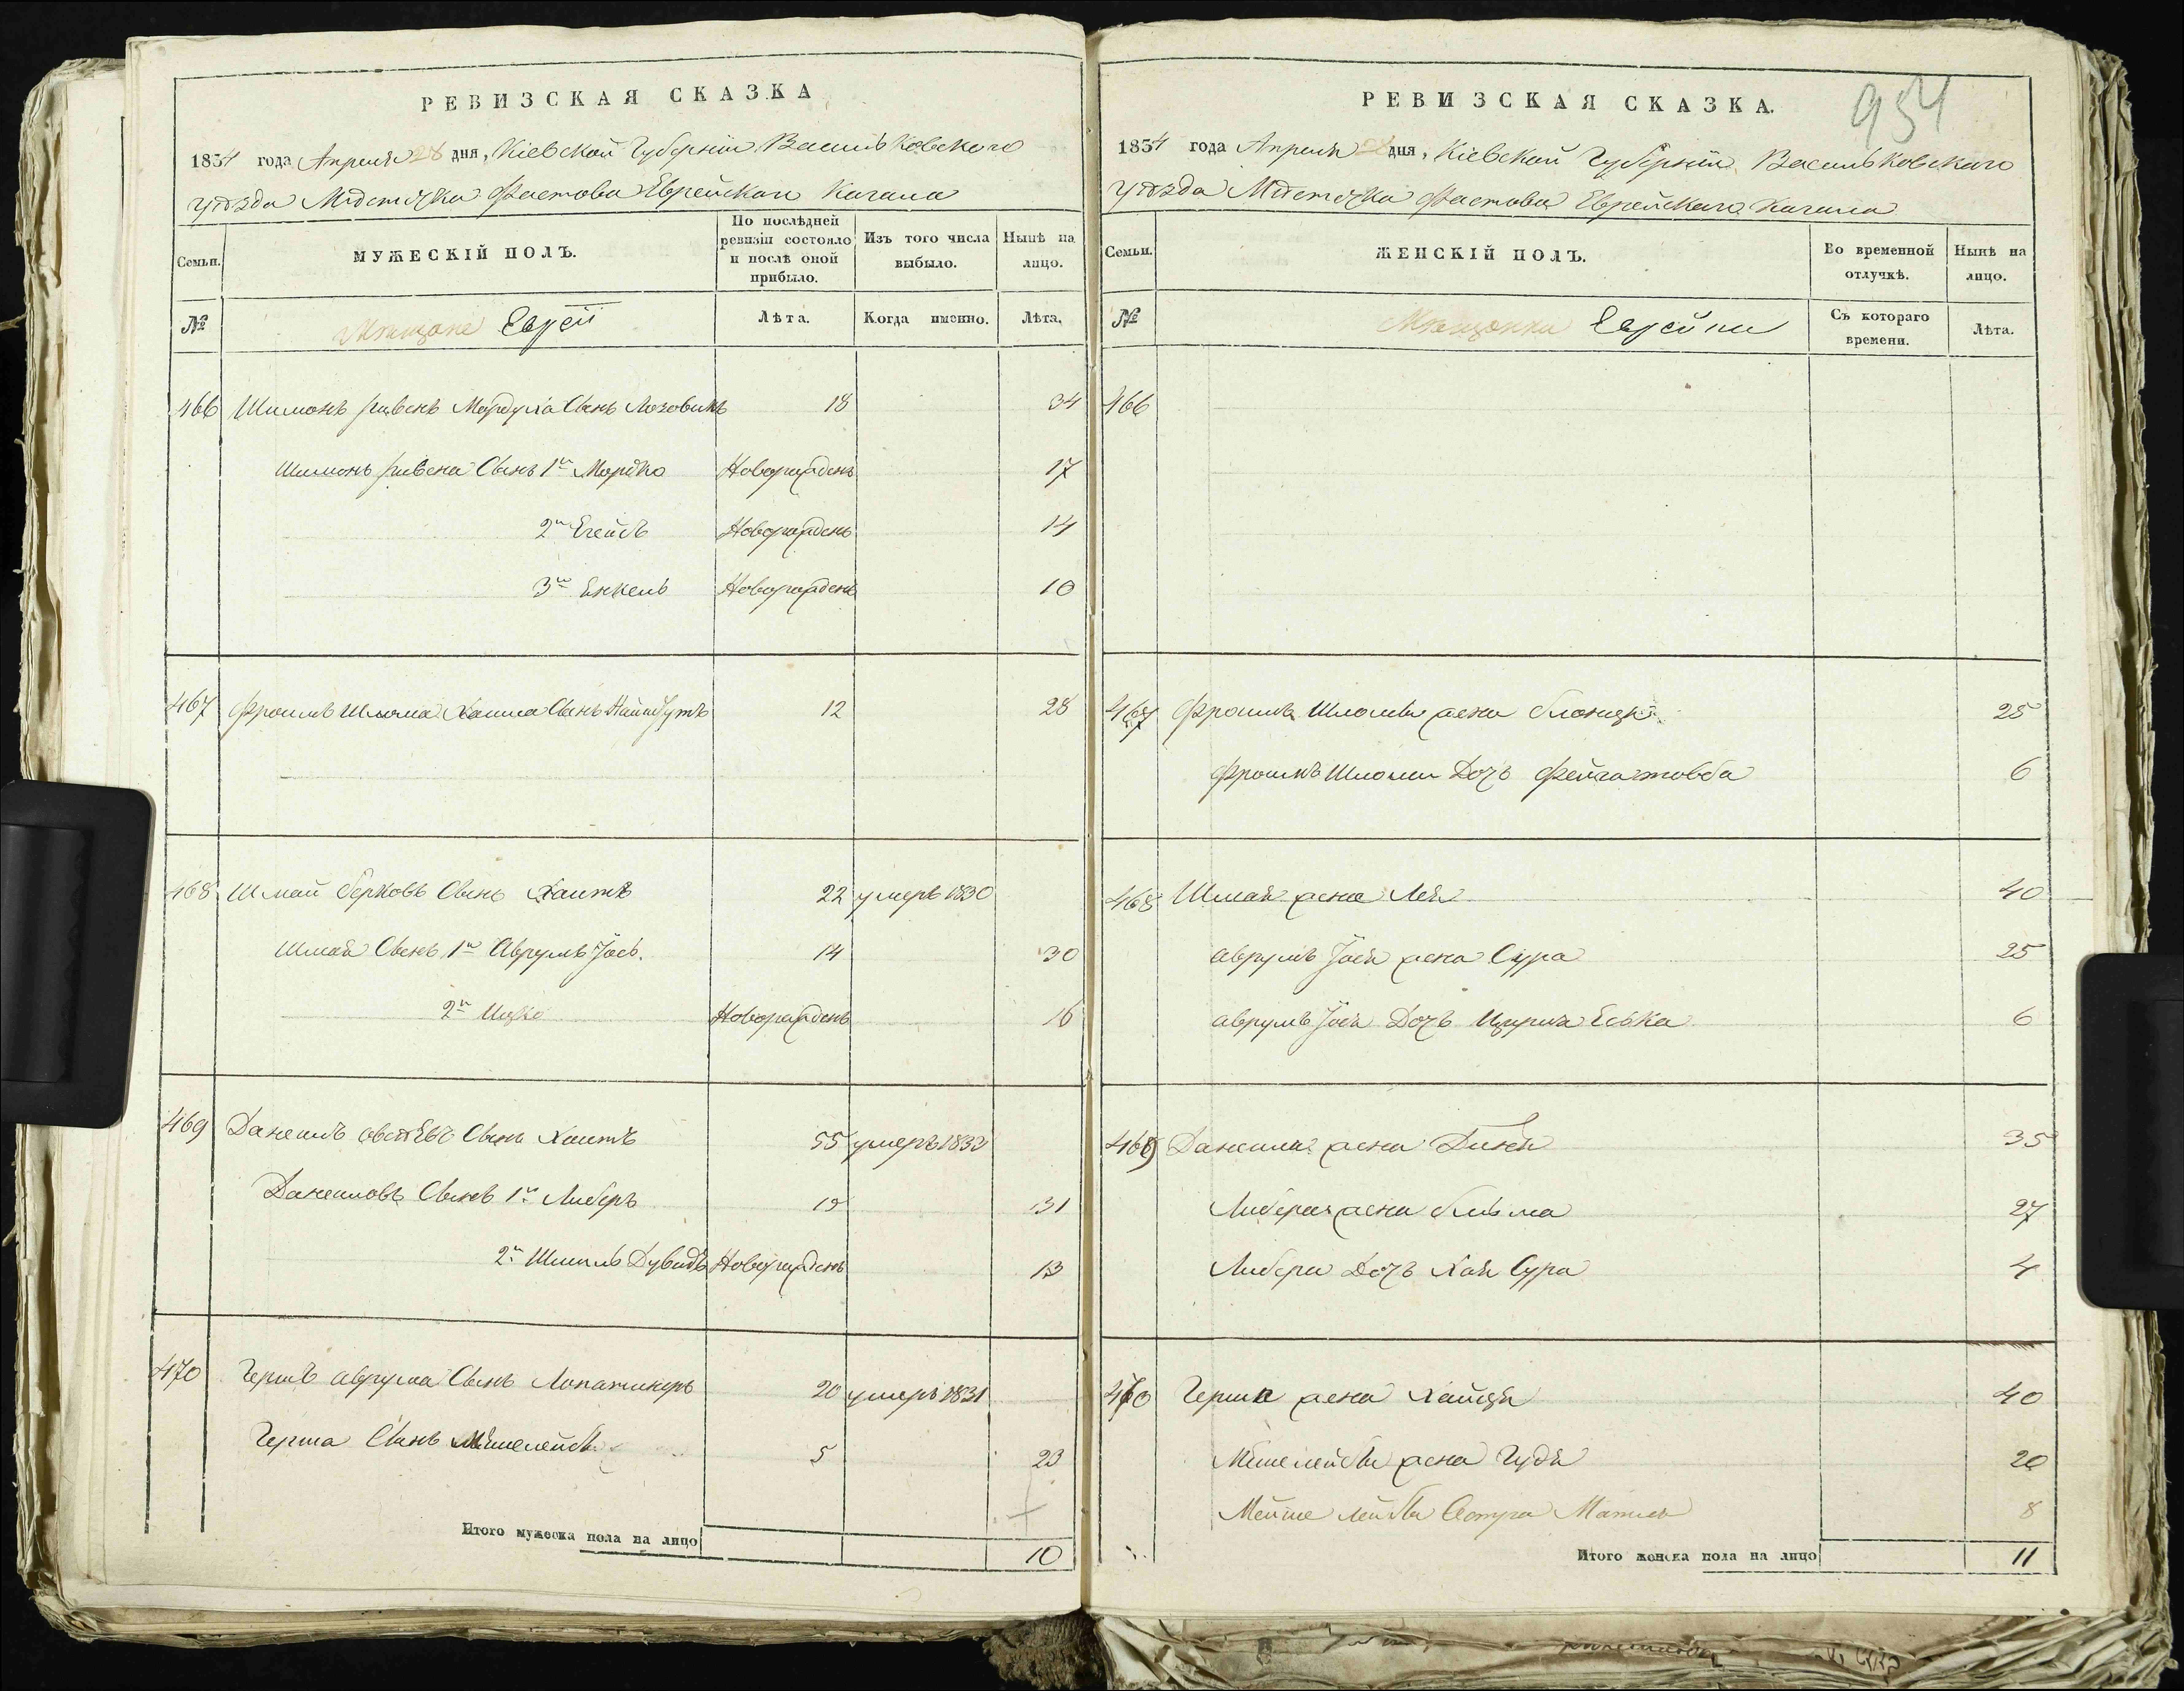 РЕВИЗСКАЯ СКАЗКА
1834 года Апреля 28 дня, Кіевской Губерніи Васильковского
уѣзда Мѣстечка Фастова Еврейскаго Кагала
Семьи.
МУЖЕСКІЙ ПОЛЪ.
По послѣдней ревизіи состояло и послѣ оной прибыло.
Изъ того числа выбыло.
Нынѣ на лицо.
№
Мещане Евреи
Лѣта.
Когда именно.
Лѣта.
466 Шимонъ Сынъ 18 34
Шимонъ Сынъ 1й Мордко Новорожденъ 17
2й Новорожденъ 14
3й Енкель Новорожденъ 10
467 Фроимъ Шлома Хаима Сынъ 12 28
468 Шмай Берковъ Сынъ 22 умеръ 1830
Шмая Сынъ 1й Аврумъ Іось. 14 30
2й Ицко Новорожденъ 16
469 Данеилъ Сынъ 55 умеръ 1833
Данеиловъ Сынъ 1й Либеръ 31
2й Дувидъ Новорожденъ 13
470 Гершъ Аврума Сынъ 20 умеръ 1831
Герша Сынъ 5 23
Итого мужеска пола на лицо 10
954
РЕВИЗСКАЯ СКАЗКА.
1834 года Апреля 28 дня, Кіевской Губерніи Васильковскаго
уѣзда Мѣстечка Фастова Еврейскаго Кагала
Семьи.
ЖЕНСКІЙ ПОЛЪ.
Во временной отлучкѣ.
Нынѣ на лицо.
№
Мещанки Еврейки
Съ котораго времени.
Лѣта.
466
467 Фроимъ Шломы жена 25
Фроимъ Шломы Дочь 6
468 Шмая жена Лея 40
Аврумъ Іося жена Сура 25
Аврумъ Іося Дочь 6
469 Данеила жена 35
Либера жена 27
Либера Дочь Хая Сура 4
470 Герша жена 40
жена Гудя 20
Лейбы 8
Итого женска пола на лицо 11